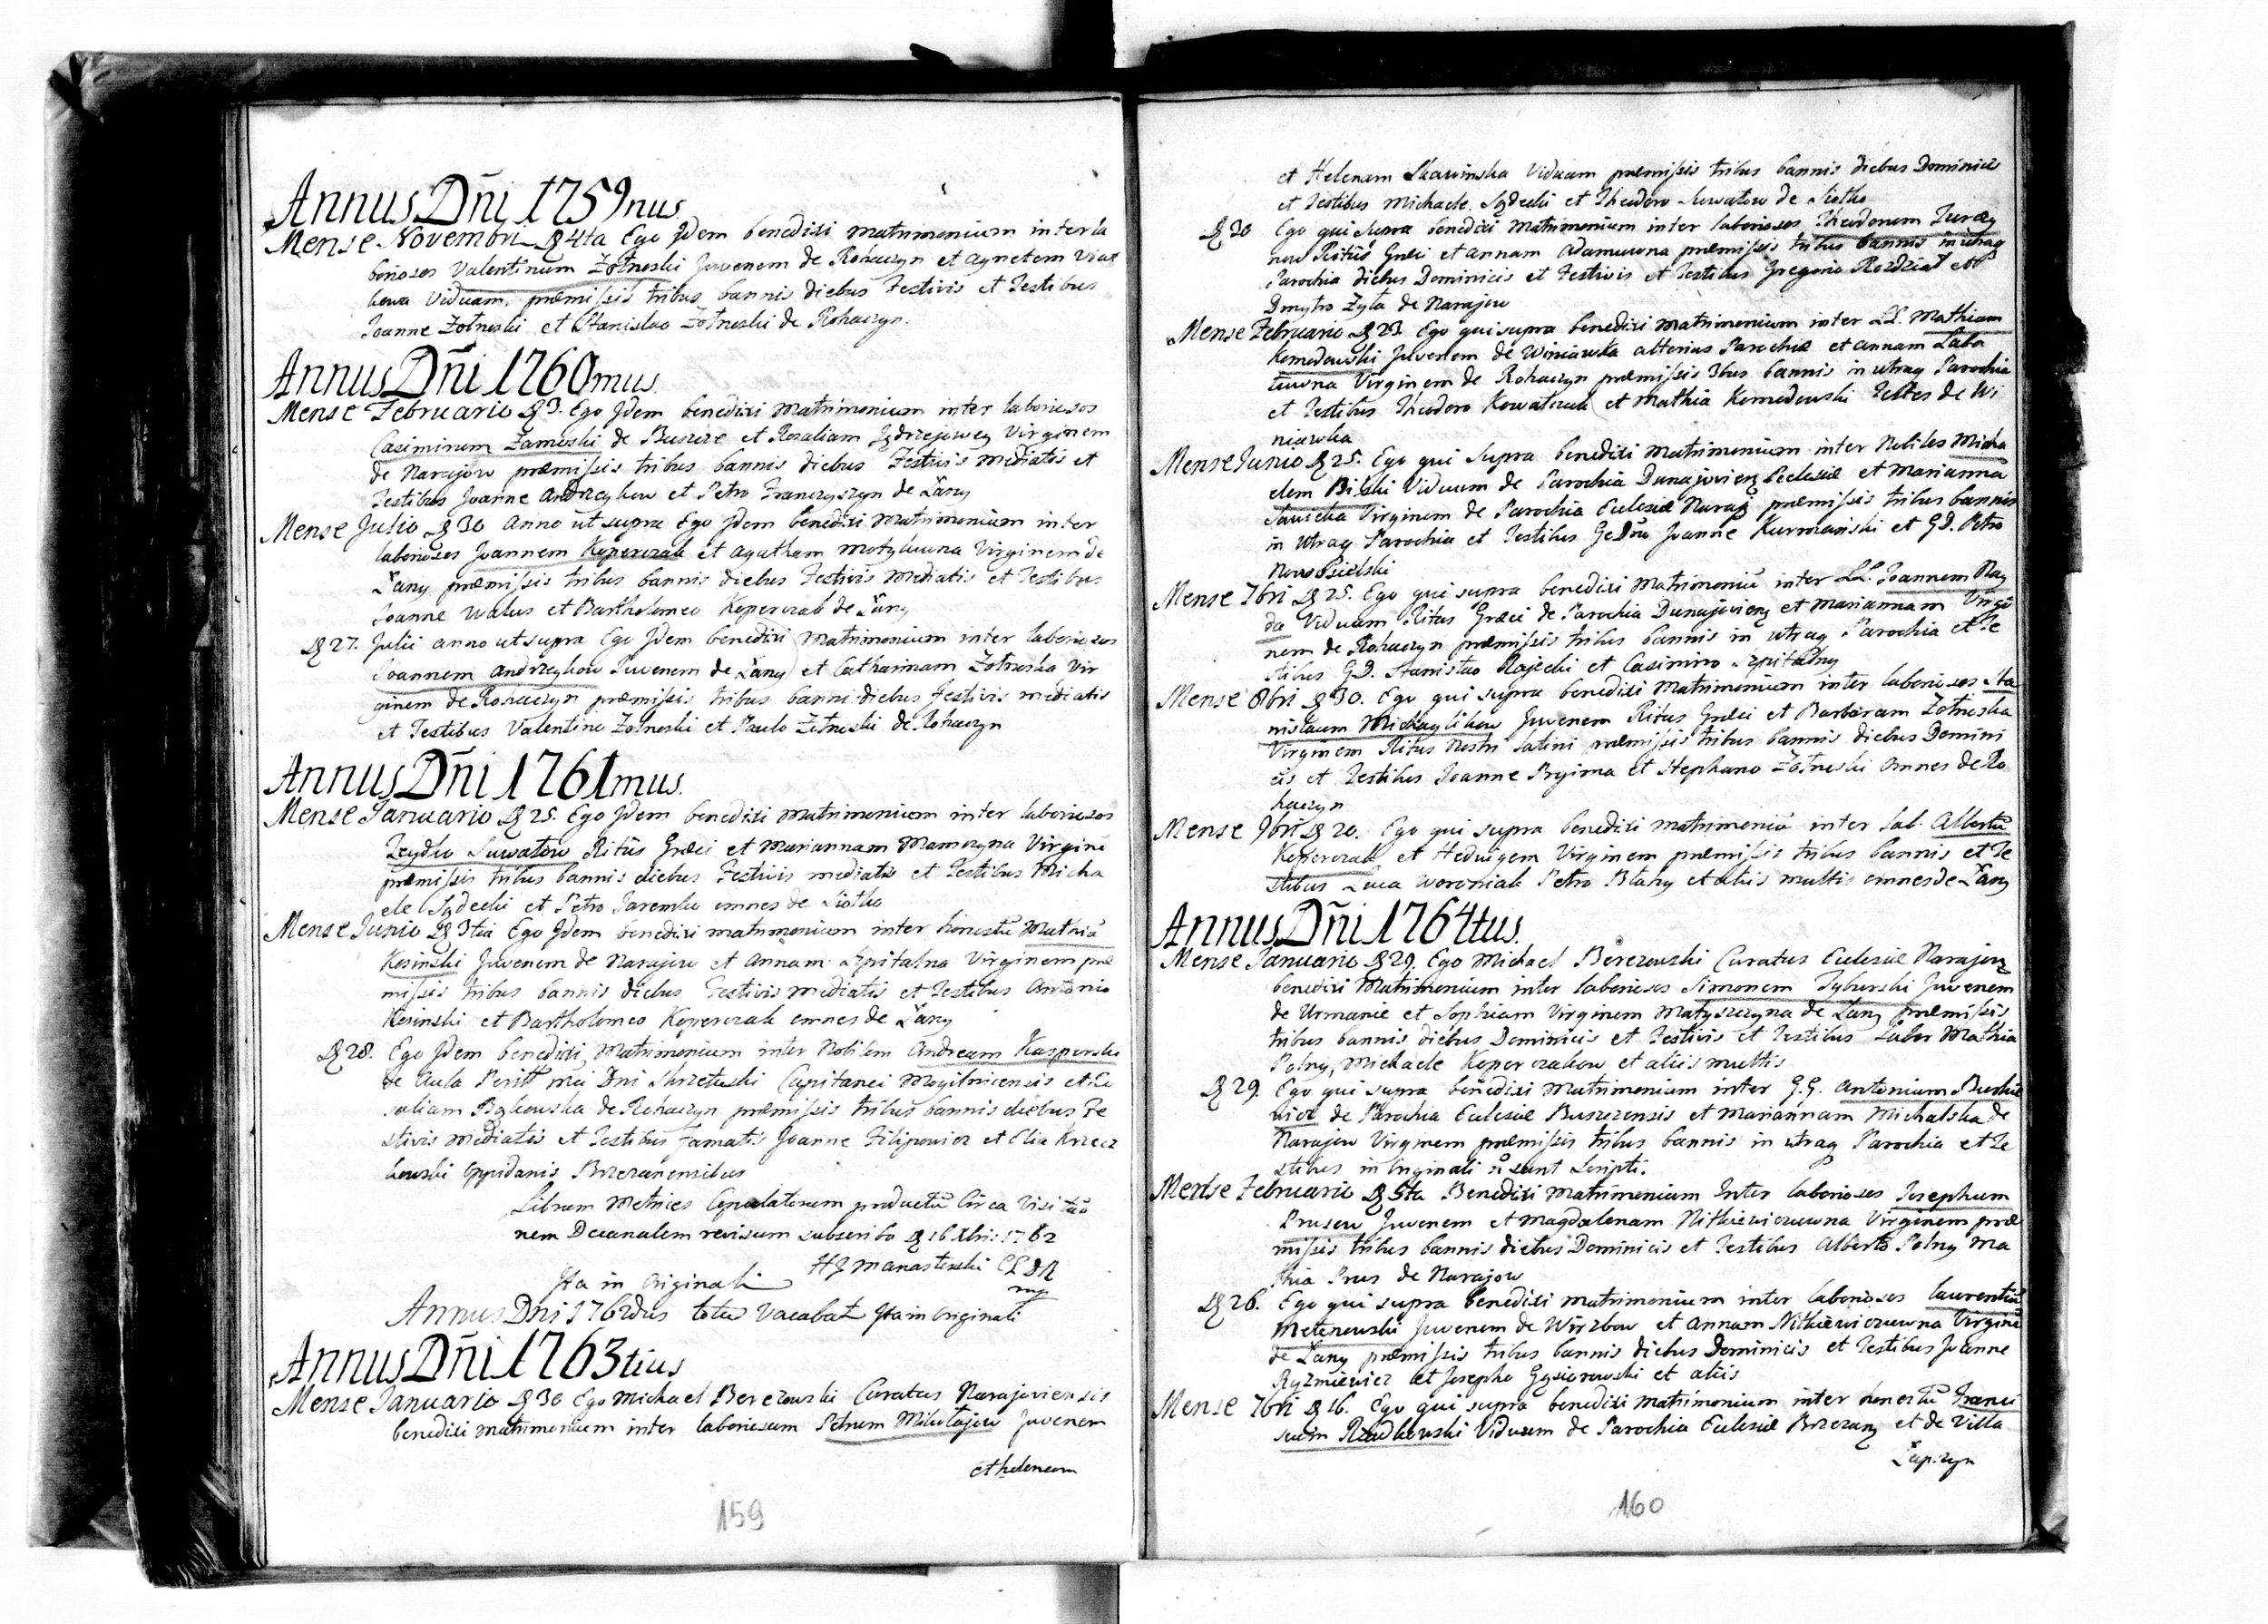 Annus Dñi 1759nus.
Mense Novembri D 4ta Ego Jdem benedixi matrimonium inter la
boriosos Valentinum Żotnoski Juvenem de Rohaczyn et Agnetem
kowa Viduam, præmissis tribus bannis diebus Festivis et Testibus
Joanne Żotnoski et Stanislao Żotnoski de Rohaczyn.
Annus Dñi 1760mus.
Mense Februario D 3. Ego Jdem benedixi matrimonium inter laboriosos
Casimirum Zamoski de Buszcze et Rosaliam Jędrzejowcy Virginem
de Narajow præmissis tribus bannis diebus Festivis mediatis et
Testibus Joanne Andrzeykow et Petro Franczyszyn de Łany
Mense Julio D 30 Anno ut supra Ego Jdem benedixi matrimonium inter
laboriosos Joannem Koperczak et Agatham Motylowna Virginem de
Łany præmissis tribus bannis diebus Festivis mediatis et Testibus
Joanne Walus et Bartholomeo Koperczak de Łany
D 27. Julii anno ut supra Ego Jdem benedixi matrimonium inter laboriosos
Joannem Andrzeykow Juvenem de Łany et Catharinam Żotnoska Vir
ginem de Rohaczyn præmissis tribus bannis diebus Festivis mediatis
et Testibus Valentino Żotnoski et Paulo Żotnoski de Rohaczyn
Annus Dñi 1761mus.
Mense Januario D 25. Ego Jdem benedixi matrimonium inter laboriosos
Suwatow Ritûs Græci et Mariannam Mamczyna Virginē
præmissis tribus bannis diebus Festivis mediatis et Testibus Micha
ele Sędecki et Petro Jaremko omnes de Siołko
Mense Junio D 3tia Ego Jdem benedixi matrimonium inter honestū Mathiā
Kosinski Juvenem de Narajow et Annam Szpitalna Virginem præ
missis tribus bannis diebus Festivis mediatis et Testibus Antonio
Kosinski et Bartholomeo Koperczak omnes de Łany
D 28. Ego Jdem benedixi matrimonium inter Nobilem Andream Kasperski
de Aula mei Dni Skrzetuski Capitanei Mogilnicensis et Ro
saliam Bąkowska de Rohaczyn præmissis tribus bannis diebus Fe
stivis mediatis et Testibus Famatis Joanne Filipowicz et Elia Krzecz
kowski Oppidanis Brzezanensibus
Librum Metrices Copulatorum productū Circa Visitaō
nem Decanalem revisum subscribo D 16 Xbris 1762
HJ Manasterski CLDR
mp
Jta in Originali
Annus Dni 1762dus totus Vacabat Jta in Originali
Annus Dñi 1763tius
Mense Januario D 30 Ego Michael Berezowski Curatus Narajoviensis
benedixi matrimonium inter laboriosum Petrum Mikołajow Juvenem
et helenam
159
et Helenam Skawinska Viduam præmissis tribus bannis diebus Dominicis
et Testibus Michaele Sędecki et Theodoro Suwatow de Siołko
D 30 Ego qui Supra benedixi Matrimonium inter laboriosos Theodorum Jurczy
now Ritûs Græci et Annam Adamowna præmissis tribus bannis in utraq
Parochia diebus Dominicis et Festivis et Testibus Gregorio Rozdział et
Dmytro Zyła de Narajow
Mense Februario D 23 Ego qui supra benedixi Matrimonium inter LL. Mathiam
Komodowski Juvenem de Winiawka alterius Parochiæ et Annam Łabu
towna Virginem de Rohaczyn præmissis 3bus bannis in utraq Parochia
et Testibus Theodoro Kowalczuk et Mathia Komodowski Testes de Wi
niawka
Mense Junio D 25. Ego qui Supra benedixi Matrimonium inter Nobiles Micha
elem Bilski Viduum de Parochia Dunajoviens Ecclesiæ et Mariannā
Sawicka Virginem de Parochia Ecclesiæ Naraj præmissis tribus bannis
in Utraq Parochia et Testibus GeDno Joanne Kurmanski et GD. Petro
Nowosielski
Mense 7bri D 25. Ego qui supra benedixi Matrimoniū inter LL. Joannem Nay
da Viduum Ritus Græci de Parochia Dunajoviens et Mariannam Virgi
nem de Rohaczyn præmissis tribus bannis in utraq Parochia et Te
stibus GD. Stanislao Rajecki et Casimiro Szpitalny
Mense 8bri D 30. Ego qui supra benedixi Matrimonium inter laboriosos Sta
nislaum Michaylikow Juvenem Ritus Græci et Barbaram Żotnoska
Virginem Ritus Nostri Latini præmissis tribus bannis diebus Domini
cis et Testibus Joanne Pryima et Stephano Żotnoski omnes de Ro
haczyn
Mense 9bri D 20. Ego qui supra benedixi matrimoniū inter Lab. Albertū
Koperczak et Hedvigem Virginem præmissis tribus bannis et Te
stibus Luca Woroniak Petro Biały et aliis multis omnes de Łany
Annus Dñi 1764tus.
Mense Januario D 29. Ego Michael Berezowski Curatus Ecclesiæ Narajov
benedixi Matrimonium inter laboriosos Simonem Tyburski Juvenem
de Urmanie et Sophiam Virginem Matyszczyna de Łany præmissis
tribus bannis diebus Dominicis et Festivis et Testibus Labor Mathia
Polny, Michaele Koperczakow et aliis multis
D 29. Ego qui supra benedixi Matrimonium inter G.G. Antonium Buckie
wicz de Parochia Ecclesiæ Buszczensis et Mariannam Michalska de
Narajow Virginem præmissis tribus bannis in utraq Parochia et Te
stibus in Originali ñ sunt Scripti.
Mense Februario D 5ta Benedixi Matrimonium Inter laboriosos Josephum
Prusow Juvenem et Magdalenam Nitkiewiczowna Virginem præ
missis tribus bannis diebus Dominicis et Testibus Alberto Polny Ma
thia Prus de Narajow
D 26. Ego qui supra benedixi matrimonium inter laboriosos Laurentiū
Metenowski Juvenem de Wirzbow et Annam Nitkiewiczowna Virginē
de Łany præmissis tribus bannis diebus Dominicis et Testibus Joanne
Ryzniewicz et Josepho Gąsiorowski et aliis
Mense 7bri D 16. Ego qui supra benedixi matrimonium inter honestū Franci
scum Rzadkowski Viduum de Parochia Ecclesiæ Brzezan et de Villa
Łapszyn
160